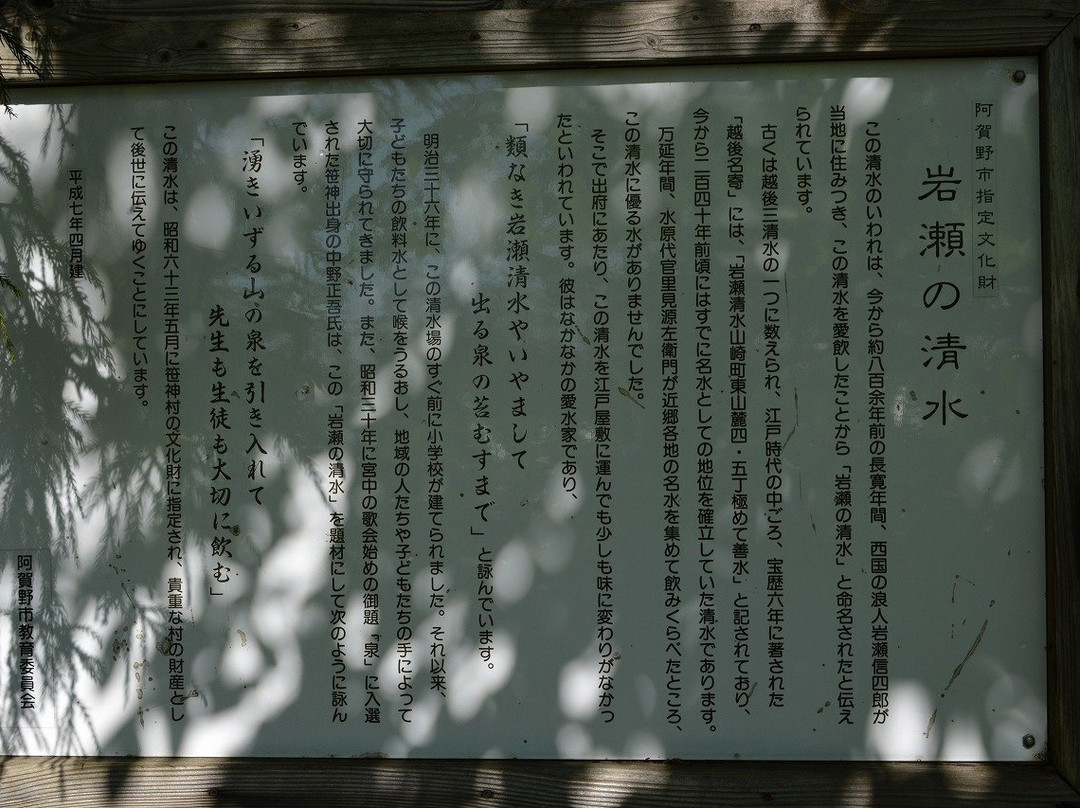 阿賀野市指定文化財
岩瀬の清水
この清水のいわれは、今から約八百余年前の長寛年間、西国の浪人岩瀬信四郎が
当地に住みつき、この清水を愛飲したことから「岩瀬の清水」と命名されたと伝え
られています。
古くは越後三清水の一つに数えられ、江戸時代の中ごろ、宝歴六年に著された
「越後名寄」には、「岩瀬清水山崎町東山麓四・五丁極めて善水」と記されており、
今から二百四十年前頃にはすでに名水としての地位を確立していた清水であります。
万延年間、水原代官里見源左衛門が近郷各地の名水を集めて飲みくらべたところ、
この清水に優る水がありませんでした。
そこで出府にあたり、この清水を江戸屋敷に運んでも少しも味に変わりがなかっ
たといわれています。彼はなかなかの愛水家であり、
「類なき岩瀬清水やいやまして
出る泉の苔むすまで」と詠んでいます。
明治三十六年に、この清水場のすぐ前に小学校が建てられました。それ以来、
子どもたちの飲料水として喉をうるおし、地域の人たちや子どもたちの手によって
大切に守られてきました。また、昭和三十年に宮中の歌会始めの御題「泉」に入選
された笹神出身の中野正吾氏は、この「岩瀬の清水」を題材にして次のように詠ん
でいます。
「湧きいずる山の泉を引き入れて
先生も生徒も大切に飲む」
この清水は、昭和六十三年五月に笹神村の文化財に指定され、貴重な村の財産とし
て後世に伝えてゆくことにしています。
平成七年四月建
阿賀野市教育委員会